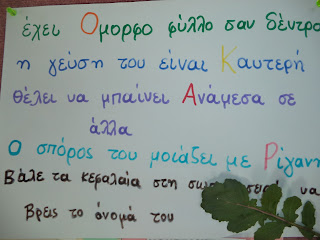 έχει Όμορφο φύλλο σαν δέντρο
η γεύση του είναι Καυτερή
θέλει να μπαίνει Ανάμεσα σε
άλλα
Ο σπόρος του μοιάζει με Ρίγανη
Βάλε τα κεφαλαία στη σειρά να
βρεις το όνομά του